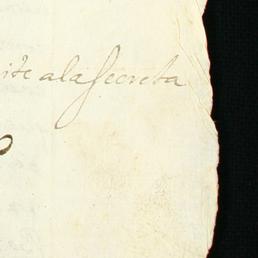 ite a la Secreta